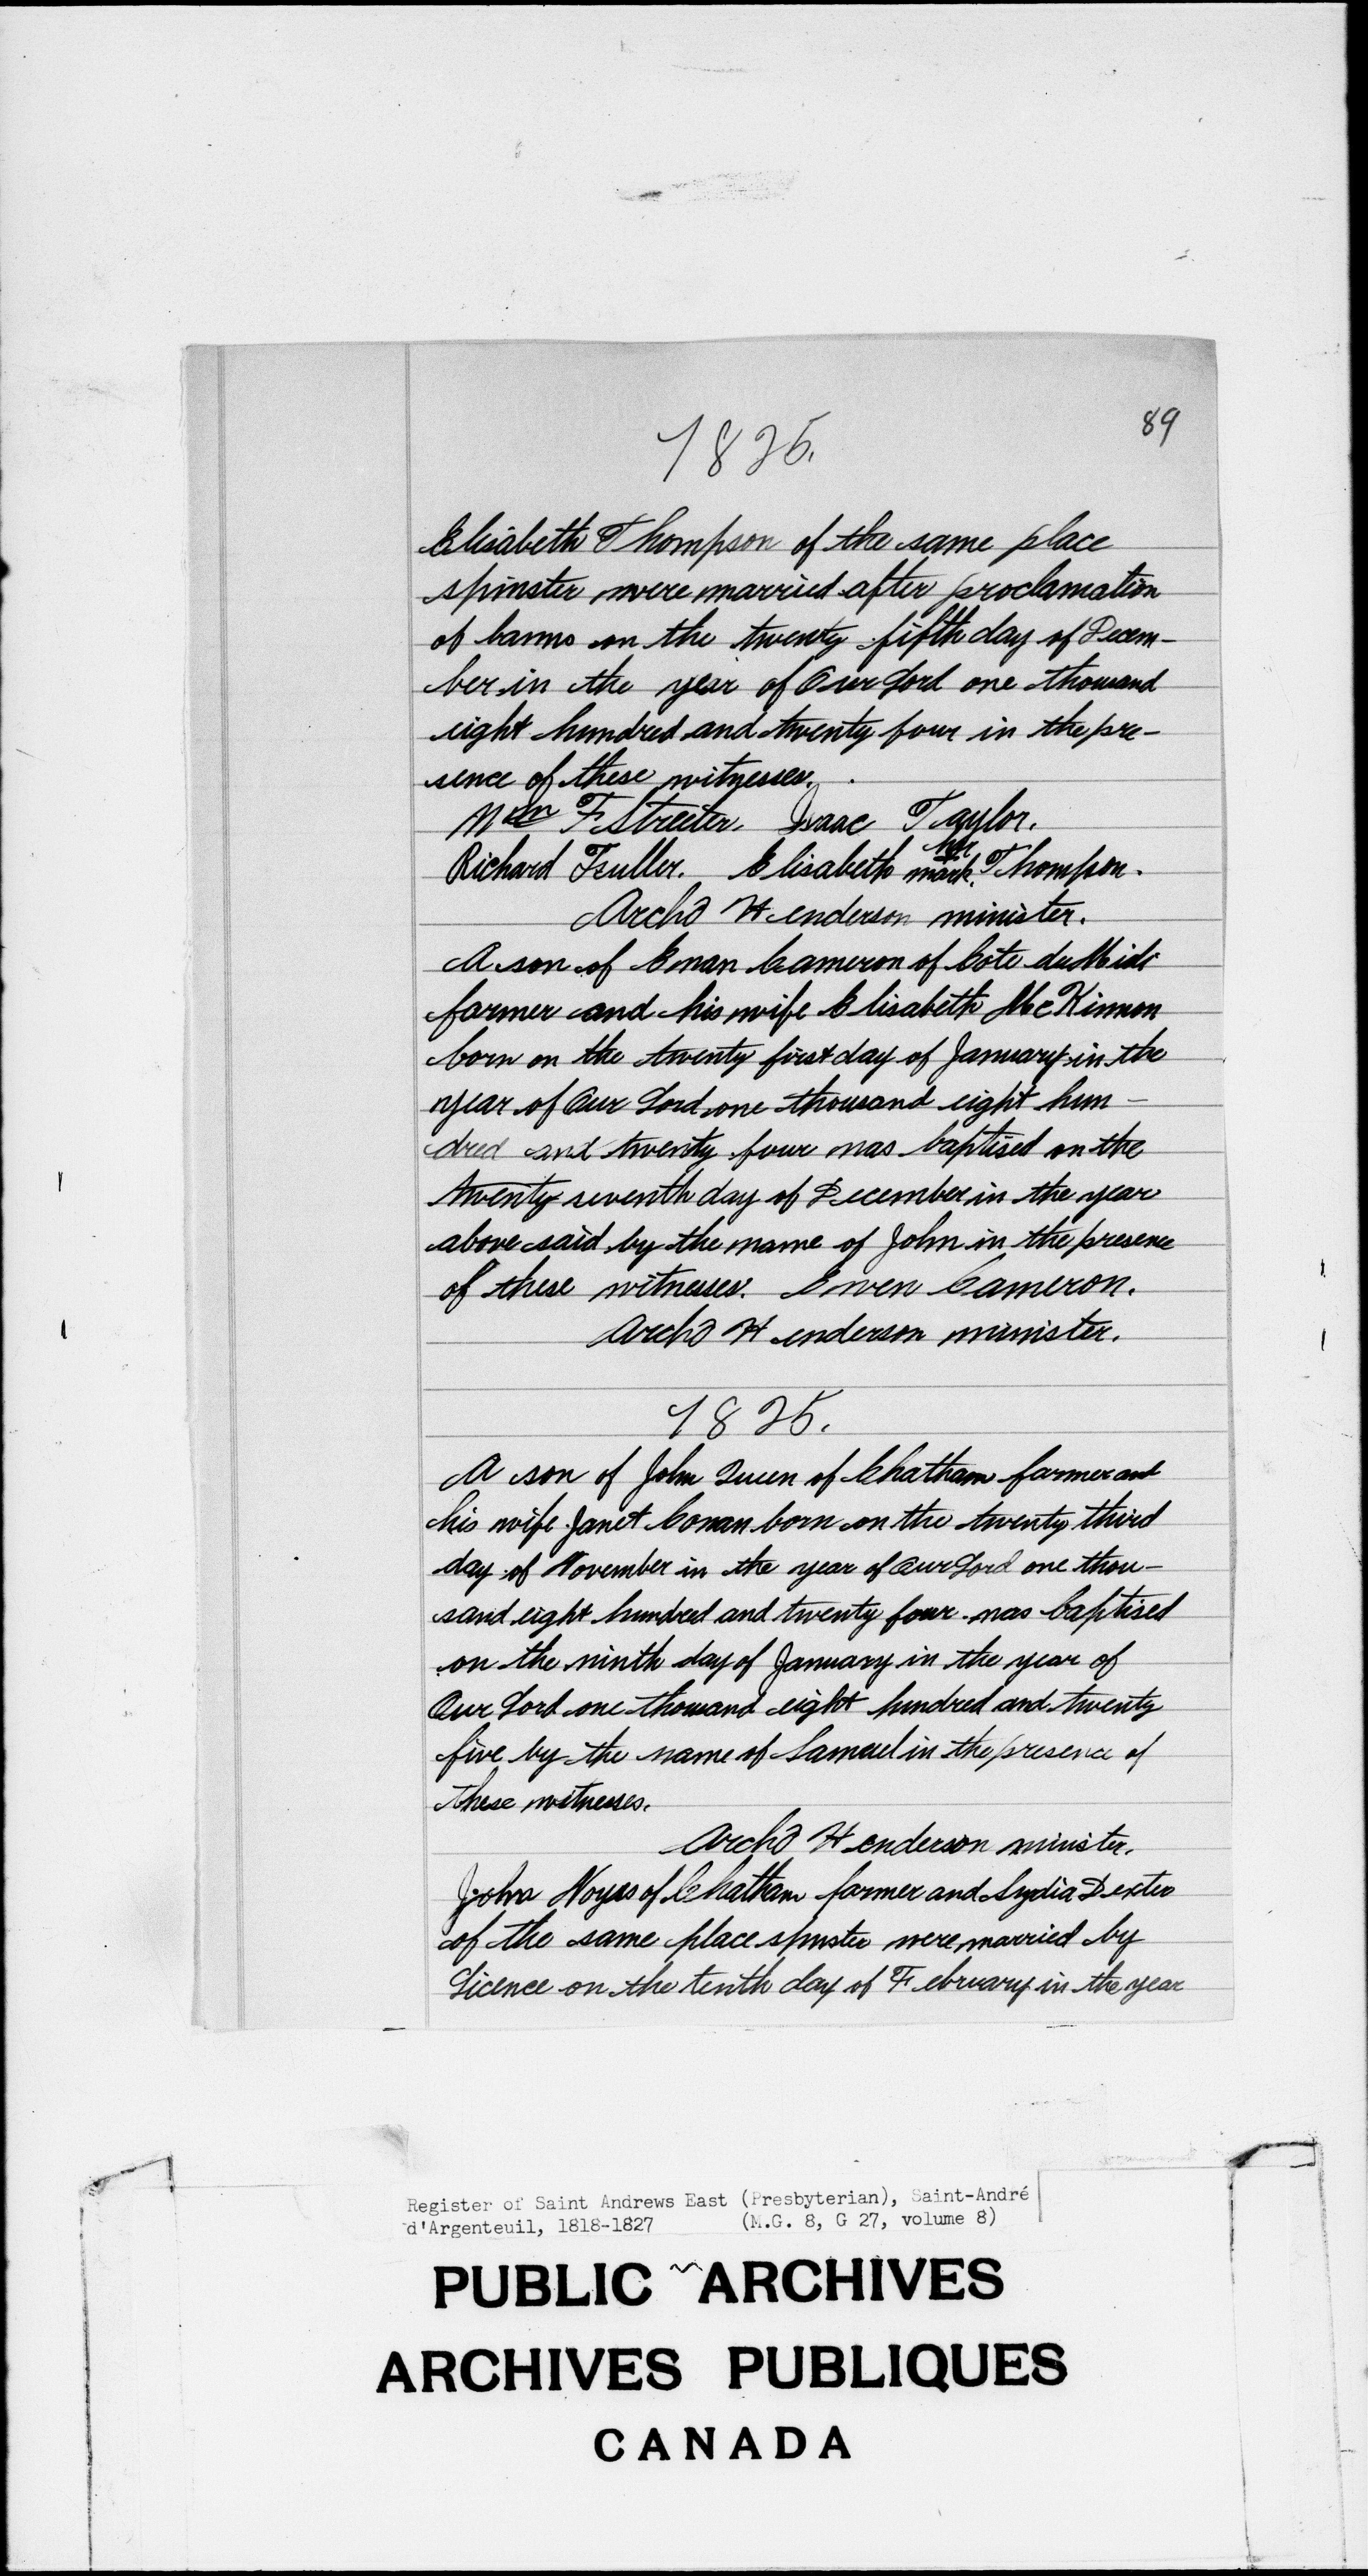 89
1825.
Elisabeth Thompson of the same place
spinster were married after proclamation
of banns on the twenty fifth day of Decem-
ber in the year of Our Lord one thousand
eight hundred and twenty four in the pre-
sence of these witnesses.
Wm F Streeter. Isaac Taylor.
her
Richard Fuller. Elisabeth mark. Thompson.
Archd Henderson minister.
A son of Ewan Cameron of Cote du Midi
farmer and his wife Elisabeth McKinnon
born on the twenty first day of January in the
year of Our Lord one thousand eight hun-
dred and twenty four was baptised on the
twenty seventh day of December in the year
above said by the name of John in the presence
of these witnesses. Ewen Cameron.
Archd Henderson minister.
1825.
A son of John of Chatham farmer and
his wife Janet Cowan born on the twenty third
day of November in the year of Our Lord one thou-
sand eight hundred and twenty four was baptised
on the ninth day of January in the year of
Our Lord one thousand eight hundred and twenty
five by the name of Samuel in the presence of
these witnesses.
Archd Henderson minister.
John Noyes of Chatham farmer and Lydia Dexter
of the same place spinster were married by
Licence on the tenth day of February in the year
Register of Saint Andrews East (Presbyterian), Saint-André
d'Argenteuil, 1818-1827 (M.G. 8, G 27, volume 8)
PUBLIC ARCHIVES
ARCHIVES PUBLIQUES
CANADA